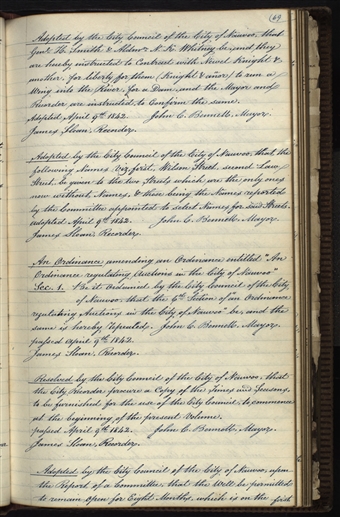 (69
Adopted by the City Council of the City of Nauvoo, that
Genl. H. Smith & Aldmn. N. K. Whitney be, and they
are hereby instructed to Contract with Newel Knight &
another. for liberty for them (Knight & anor.) to run a
Wing into the River, for a Dam, and the Mayor and
Recorder are instructed to Confirm the same.
Adopted April 9th 1842. John C. Bennett, Mayor.
James Sloan, Recorder.
Adopted by the City Council of the City of Nauvoo, that the
following Names, viz, first, Wilson Street, second Law
Street, be given to the two Streets which are the only ones
now without Names, & these being the Names reported
by the Committee appointed to select Names for said Streets.
adopted April 9th 1842. John C. Bennett, Mayor.
James Sloan, Recorder.
An Ordinance amending an Ordinance entitled "An
Ordinance regulating Auctions in the City of Nauvoo"
Sec. 1. Be it Ordained by the City Council of the City
of Nauvoo, that the 6th Section of an Ordinance
regulating Auctions in the City of Nauvoo be, and the
same is hereby repealed. John C. Bennett, Mayor.
passed April 9th 1842.
James Sloan, Recorder.
Resolved by the City Council of the City of Nauvoo, that
the City Recorder procure a Copy of the Times and Seasons,
to be furnished for the use of the City Council, to commence
at the beginning of the present Volume.
passed April 9th 1842. John C. Bennett, Mayor.
James Sloan, Recorder.
Adopted by the City Council of the City of Nauvoo, upon
the Report of a Committee, that the Well be permitted
to remain open for Eight Months, which is on the first